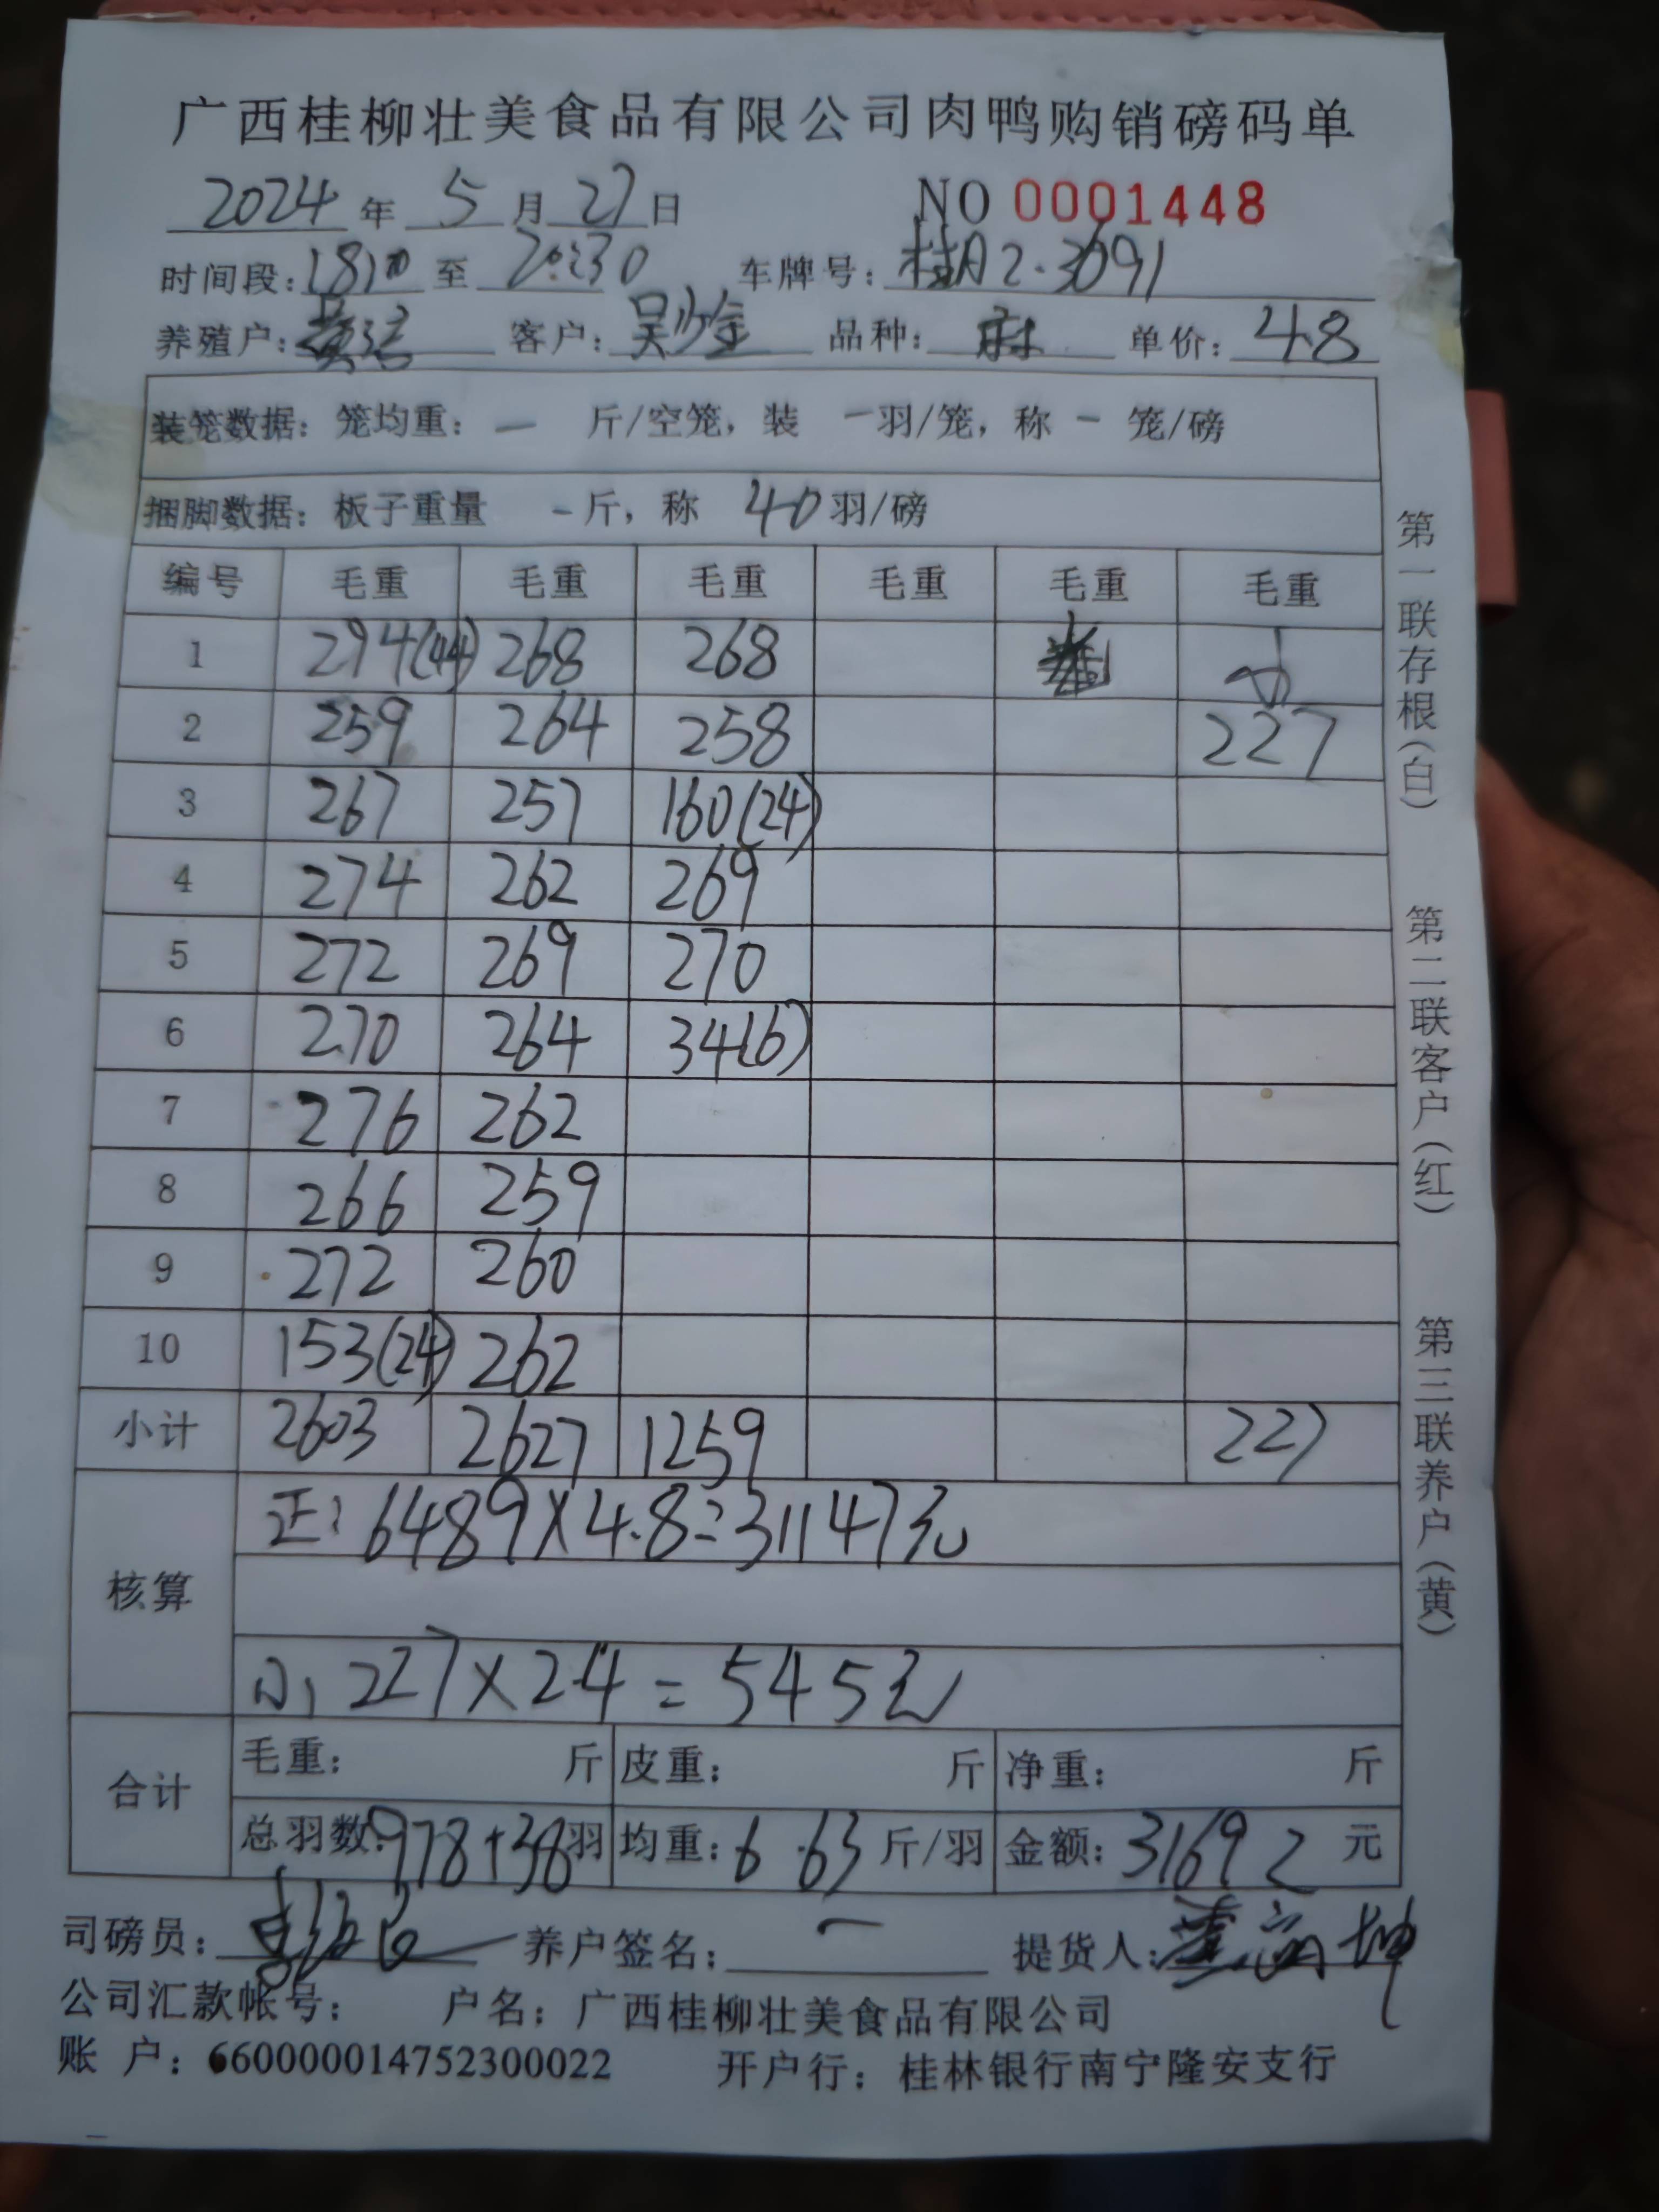 广西桂柳壮美食品有限公司肉鸭购销磅码单
2024 年 5 月 27 日 NO 0001448
时间段: 18:00 至 20:30 车牌号: 桂A2·3691
养殖户: 客户: 吴 品种: 麻 单价: 4.8
装笼数据: 笼均重: — 斤/空笼, 装 — 羽/笼, 称 — 笼/磅
捆脚数据: 板子重量 - 斤, 称 40 羽/磅
编号 毛重 毛重 毛重 毛重 毛重 毛重
1 294(44) 268 268 小
2 259 264 258 227
3 267 257 160(24)
4 274 262 269
5 272 269 270
6 270 264 34(6)
7 276 262
8 266 259
9 272 260
10 153(24) 262
小计 2603 2627 1259 227
核算
正: 6489×4.8=31147元
小: 227×2.4=545元
合计
毛重: 斤 皮重: 斤 净重: 斤
总羽数: 978+38 羽 均重: 6.63 斤/羽 金额: 31692 元
司磅员: 养户签名: — 提货人:
公司汇款帐号: 户名: 广西桂柳壮美食品有限公司
账 户: 660000014752300022 开户行: 桂林银行南宁隆安支行
第一联存根(白) 第二联客户(红) 第三联养户(黄)